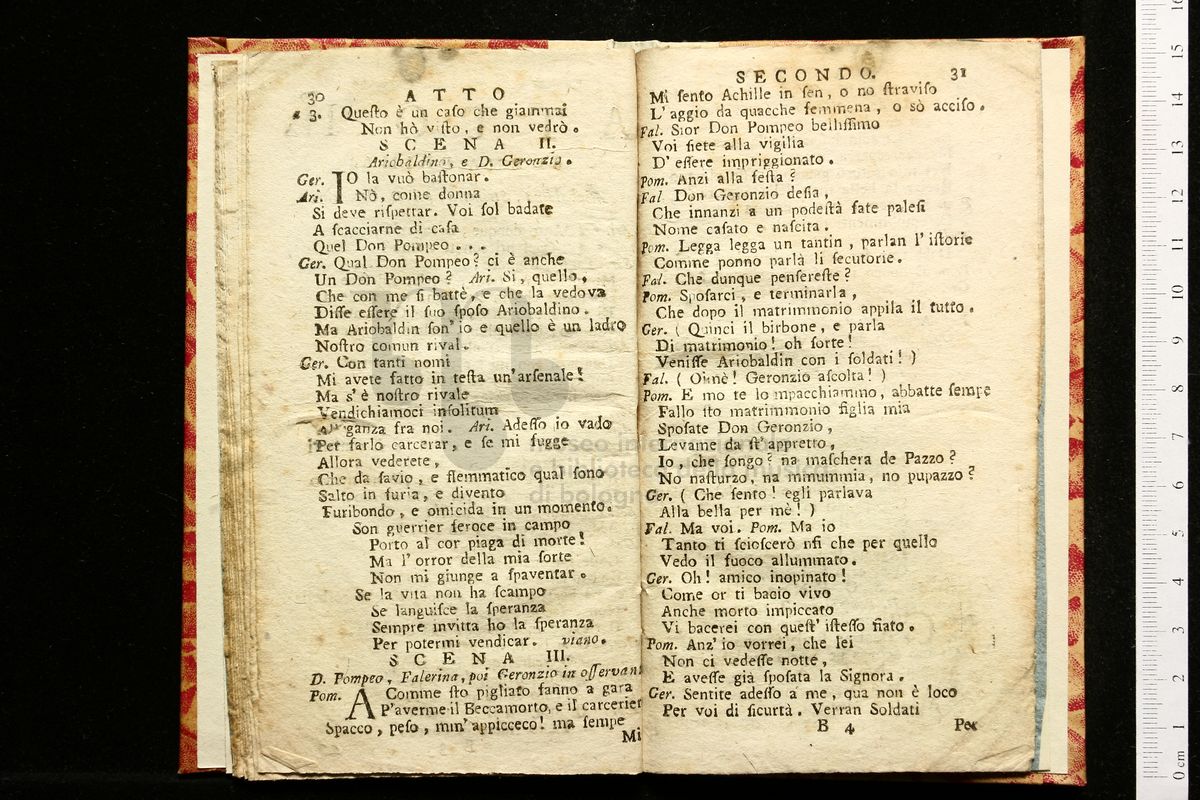 30 ATTO
a 3. Queſto è un caſo che giammai
Non hò viſto, e non vedrò.
SCENA II.
Ariobaldino, e D. Geronzio.
Ger. IO la vuò baſtonar.
Ari. Nò, come donna
Si deve riſpettar. Voi ſol badate
A ſcacciarne di caſa
Quel Don Pompeo...
Ger. Qual Don Pompeo? ci è anche
Un Don Pompeo? Ari. Si, quello,
Che con me ſi battè, e che la vedova
Diſſe eſſere il ſuo ſpoſo Ariobaldino.
Ma Ariobaldin ſon' io e quello è un ladro
Noſtro comun rival.
Ger. Con tanti nomi
Mi avete fatto in teſta un'arſenale!
Ma s'è noſtro rivale
Vendichiamoci inſolitum
ganza fra noi. Ari. Adeſſo io vado
Per farlo carcerar, e ſe mi fugge
Allora vederete,
Che da ſavio, e flemmatico qual ſono
Salto in furia, e divento
Furibondo, e omicida in un momento.
Son guerrier feroce in campo
Porto al cor piaga di morte!
Ma l'orror della mia ſorte
Non mi giunge a ſpaventar.
Se la vita non ha ſcampo
Se languiſce la ſperanza
Sempre invitta ho la ſperanza
Per potermi vendicar. viano.
SCENA III.
D. Pompeo, Falerina, poi Geronzio in oſſervan
Pom. A Comme ſto pigliato fanno a gara
P'averme il Beccamorto, e il carcerier
Spacco, peſo, mm'appicceco! ma ſempe
Mi
SECONDO. 31
Mi ſento Achille in ſen, o no ſtraviſo
L'aggio da quacche femmena, o sò acciſo.
Fal. Sior Don Pompeo belliſſimo
Voi ſiete alla vigilia
D'eſſere impriggionato.
Pom. Anzi alla feſta?
Fal Don Geronzio deſia,
Che innanzi a un podeſtà fate paleſi
Nome caſato e naſcita.
Pom. Legga legga un tantin, parlan l'iſtorie
Comme ponno parlà li ſecutorie.
Fal. Che dunque penſereſte?
Pom. Spoſarci, e terminarla,
Che dopo il matrimmonio appila il tutto.
Ger. (Quinci il birbone, e parla
Di matrimonio! oh ſorte!
Veniſſe Ariobaldin con i ſoldati!)
Fal. (Ohnè! Geronzio aſcolta!)
Pom. E mo te lo mpacchiammo, abbatte ſempe
Fallo ſto matrimmonio figlia mia
Spoſate Don Geronzio,
Levame da ſt'appretto,
Io, che ſongo? na maſchera de Pazzo?
No naſturzo, na mmummia, no pupazzo?
Ger. (Che ſento! egli parlava
Alla bella per mè!)
Fal. Ma voi. Pom. Ma io
Tanto ti ſcioſcerò nfi che per quello
Vedo il fuoco allummato.
Ger. Oh! amico inopinato!
Come or ti bacio vivo
Anche morto impiccato
Vi bacerei con queſt'iſteſſo fiato.
Pom. Anz'io vorrei, che lei
Non ci vedeſſe notte,
E aveſſe già ſpoſata la Signora.
Ger. Sentite adeſſo a me, qua non è loco
Per voi di ſicurtà. Verran Soldati
B 4 Per